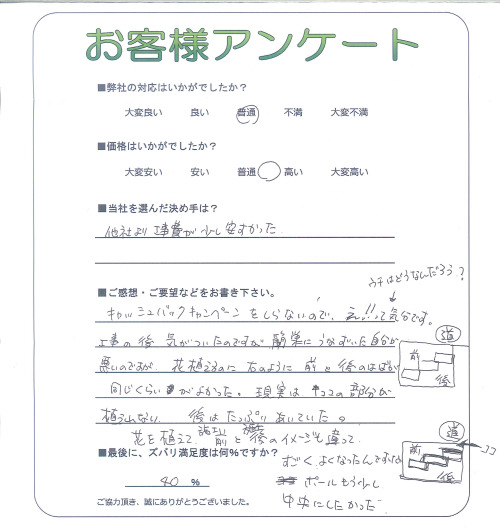 お客様アンケート
■弊社の対応はいかがでしたか？
大変良い 良い 普通 不満 大変不満
■価格はいかがでしたか？
大変安い 安い 普通 高い 大変高い
■当社を選んだ決め手は？
他社より工事費が少し安すかった
■ご感想・ご要望などをお書き下さい。
ウチはどうなんだろう？
キャッシュバックキャンペーンをしらないので、えぇ!!って気分です。
工事の後 気がついたのですが 簡単にうなずいた自分が
悪いのですが、花植えるのに 右のように 前と後のはばが
道
前
後
同じくらいがよかった。現実は ココの部分が
植えれない 後はたっぷりあいていた。
花を植えて 前と後のイメージも違って
■最後に、ズバリ満足度は何%ですか？
すごく よくなったんですが
道
前
後
ココ
40 %
ポールもう少し
中央にしたかった
ご協力頂き、誠にありがとうございました。